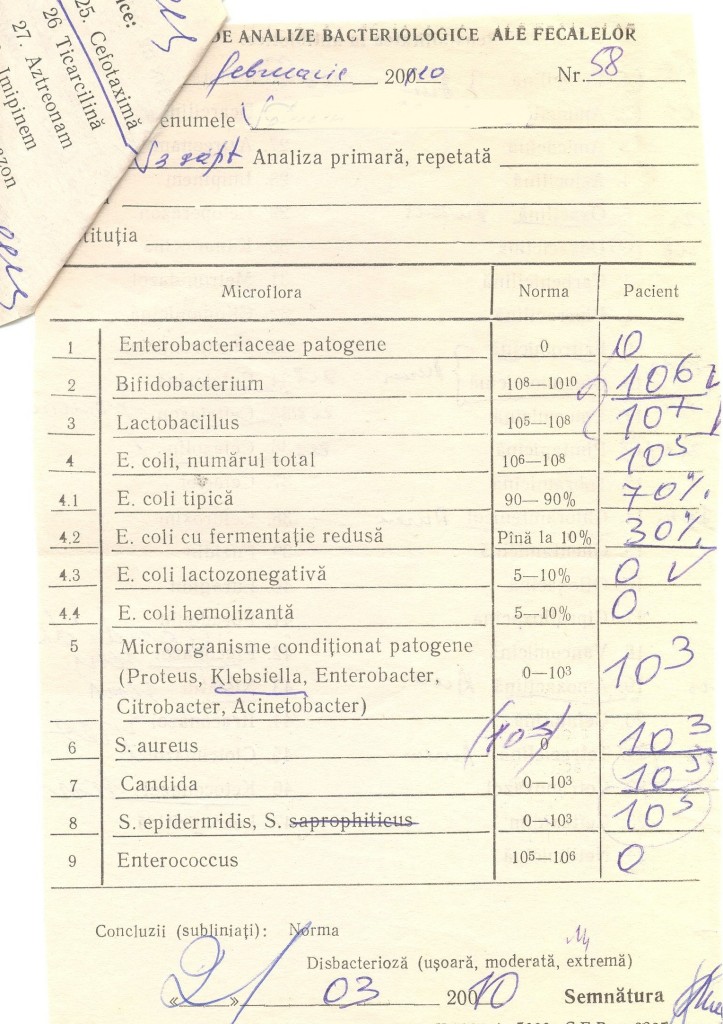 ice:
25. Cefotaximă
26 Ticarcilină
27. Aztreonam
Imipinem
azon
DE ANALIZE BACTERIOLOGICE ALE FECALELOR
februarie 20010 Nr. 58
enumele
3 săpt Analiza primară, repetată
tituția
Microflora Norma Pacient
1 Enterobacteriaceae patogene 0 0
2 Bifidobacterium 10⁸—10¹⁰ 10⁶
3 Lactobacillus 10⁵—10⁸ 10⁷
4 E. coli, numărul total 10⁶—10⁸ 10⁵
4.1 E. coli tipică 90— 90% 70%
4.2 E. coli cu fermentație redusă Pînă la 10% 30%
4.3 E. coli lactozonegativă 5—10% 0
4.4 E. coli hemolizantă 5—10% 0
5 Microorganisme condiționat patogene
(Proteus, Klebsiella, Enterobacter, 0—10³ 10³
Citrobacter, Acinetobacter)
6 S. aureus 0 10³
7 Candida 0—10³
8 S. epidermidis, S. saprophiticus 0—10³
9 Enterococcus 10⁵—10⁶ 0
Concluzii (subliniați): Norma
Disbacterioză (ușoară, moderată, extremă)
«2» 03 20010 Semnătura